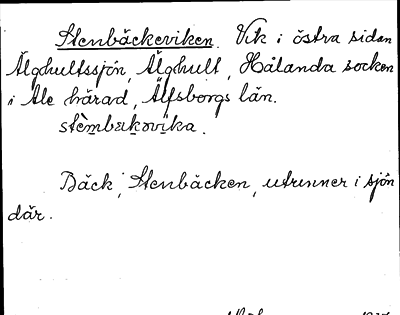 Stenbäckeviken. Vik i östra sidan
Älghultssjön, Älghult, Hålanda socken
i Ale härad, Älfsborgs län.
Bäck, Stenbäcken, utrinner i sjön
där.